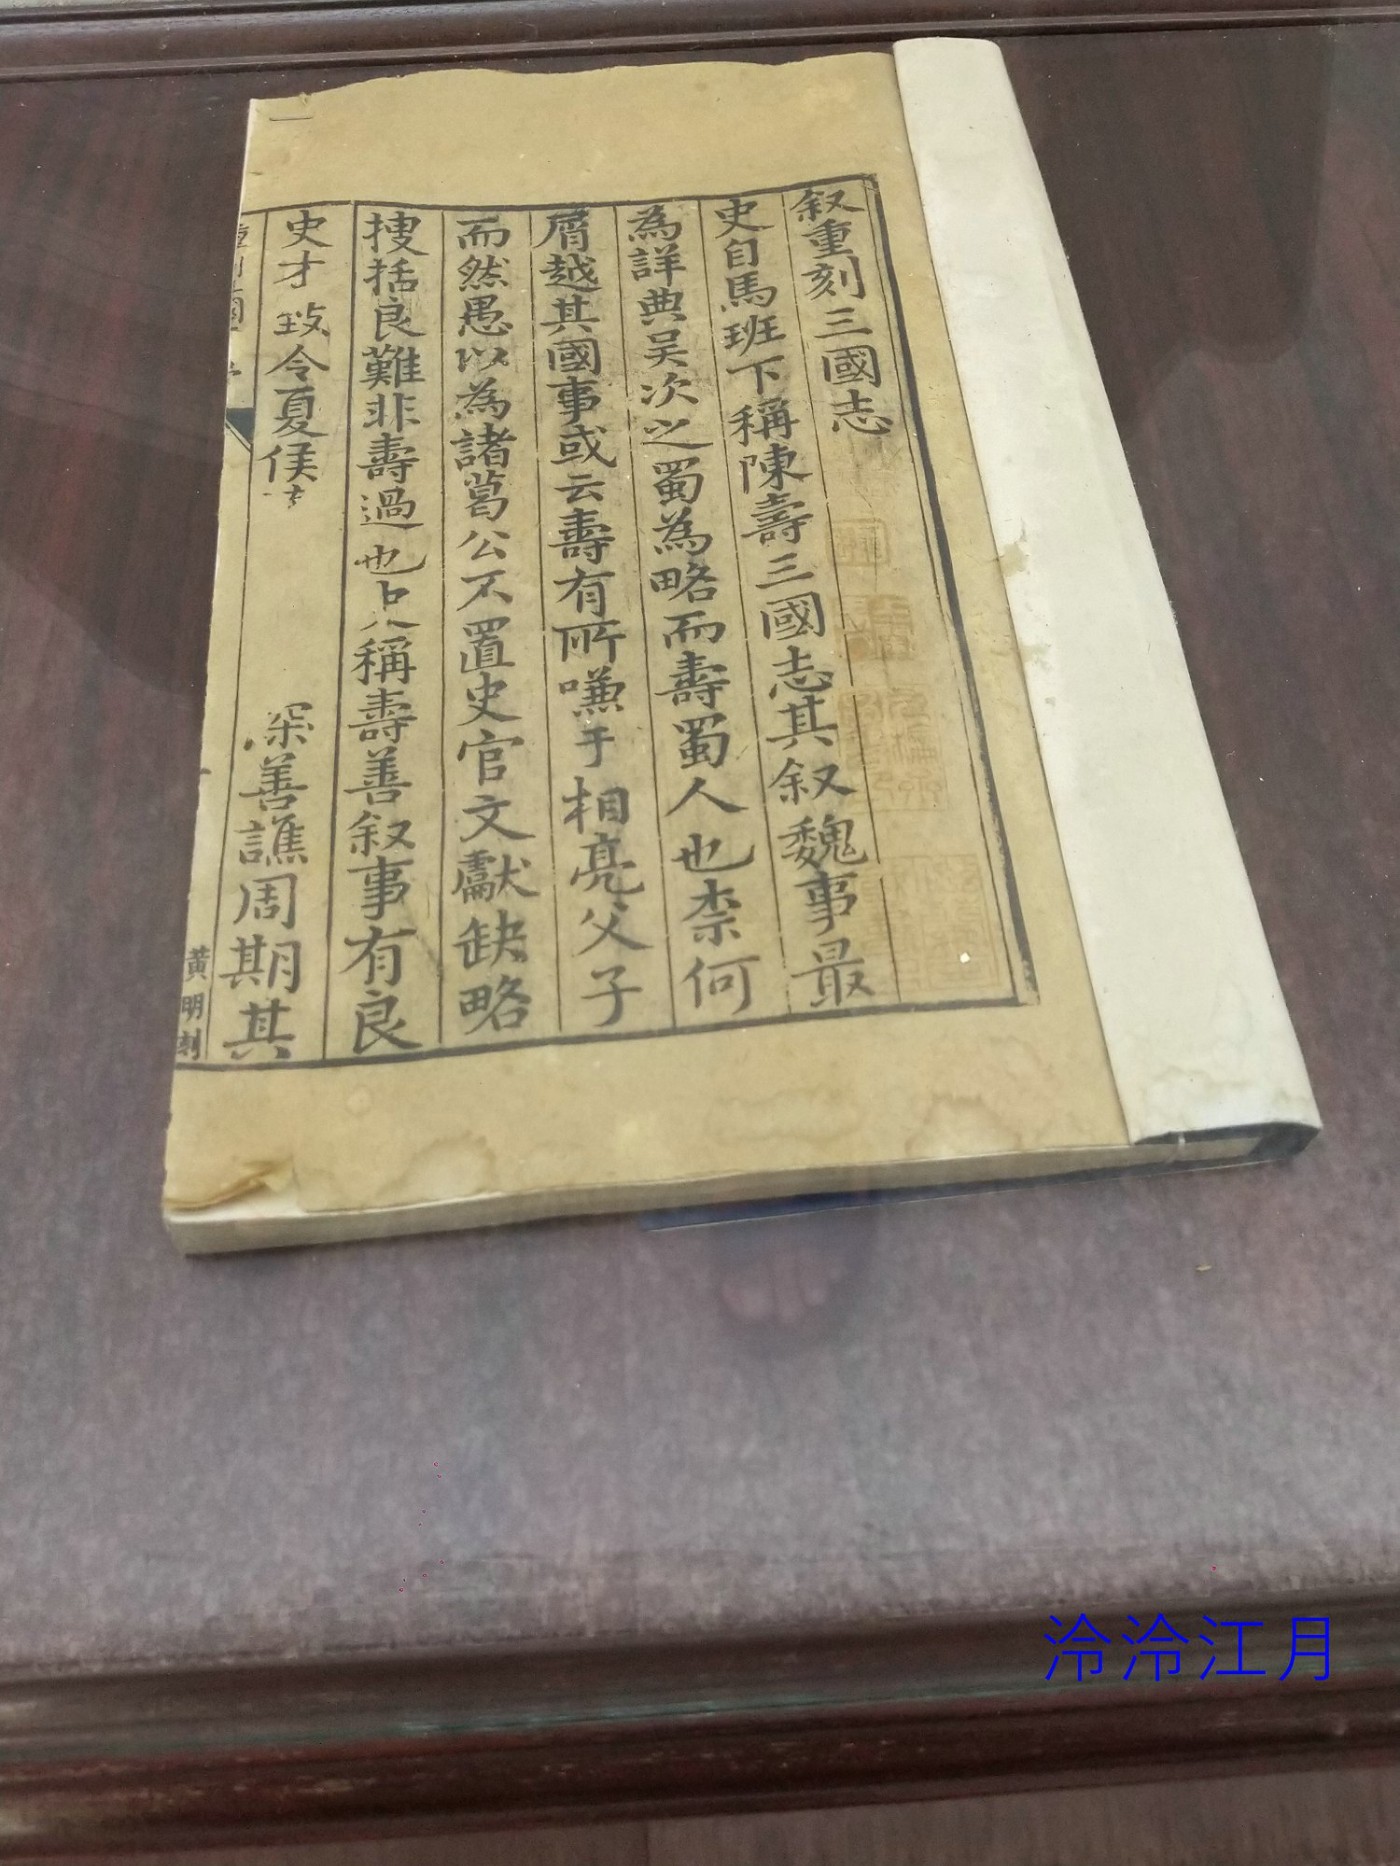 叙重刻三國志
史自馬班下稱陳壽三國志其叙魏事最
為詳典吴次之蜀為略而壽蜀人也柰何
屑越其國事或云壽有所嗛于相亮父子
而然愚以為諸葛公不置史官文獻缺略
搜括良難非壽過也稱壽善叙事有良
史才致令夏侯深善譙周期其
黄明刻
泠泠江月